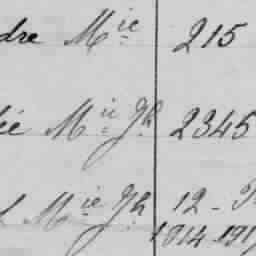 dre Mie 215
ée Mie Jh 2345
l Mie Jh 12 -
1914-191